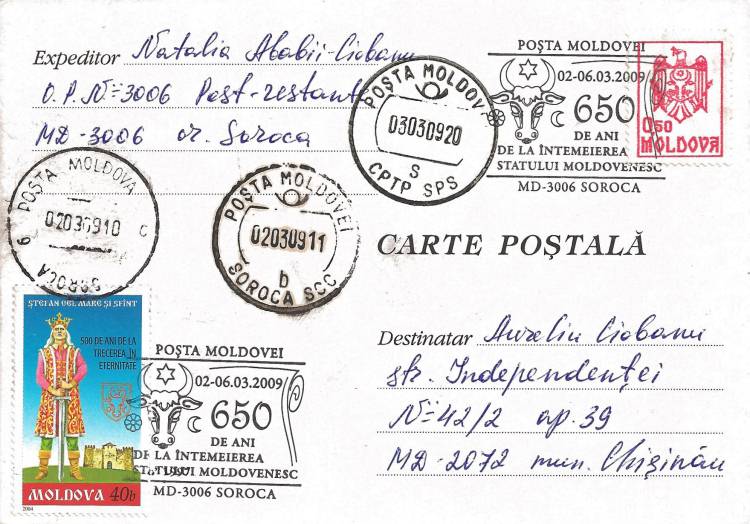 Expeditor Natalia Ababii-Ciobanu
O.P. № 3006 Post-restant
MD-3006 or. Soroca
POȘTA MOLDOVEI
02-06.03.2009
650
DE ANI
DE LA ÎNTEMEIEREA
STATULUI MOLDOVENESC
MD-3006 SOROCA
0,50
MOLDOVA
POȘTA MOLDOVEI
03030920
S
CPTP SPS
POȘTA MOLDOVA
02030910
SOROCA 6
POȘTA MOLDOVEI
02030911
b
SOROCA SCC
CARTE POȘTALĂ
Destinatar Aureliu Ciobanu
str. Independenței
№ 42/2 ap. 39
MD-2072 mun. Chișinău
ȘTEFAN CEL MARE ȘI SFÎNT
500 DE ANI DE LA
TRECEREA ÎN
ETERNITATE
MOLDOVA 40b
2004
POȘTA MOLDOVEI
02-06.03.2009
650
DE ANI
DE LA ÎNTEMEIEREA
STATULUI MOLDOVENESC
MD-3006 SOROCA